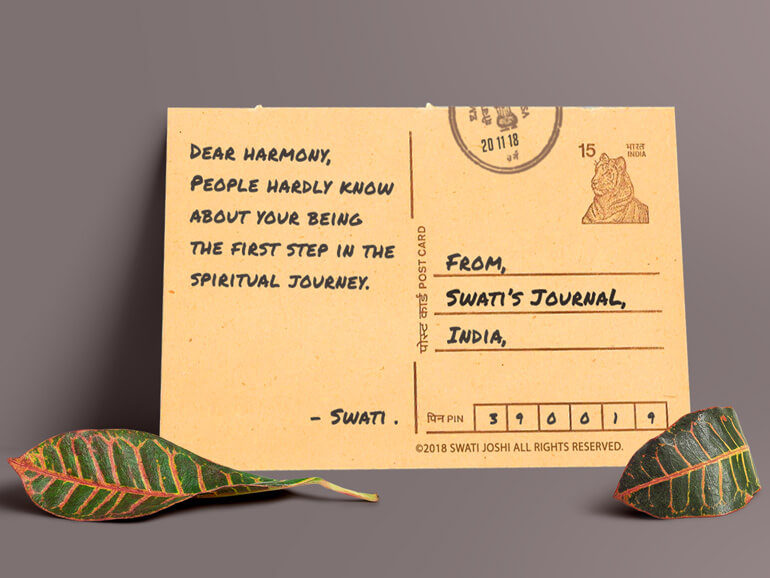 DEAR HARMONY,
PEOPLE HARDLY KNOW
ABOUT YOUR BEING
THE FIRST STEP IN THE
SPIRITUAL JOURNEY.
- SWATI .
पोस्ट कार्ड POST CARD
20 11 18
15 भारत
INDIA
FROM,
SWATI'S JOURNAL,
INDIA,
पिन PIN 3 9 0 0 1 9
©2018 SWATI JOSHI ALL RIGHTS RESERVED.